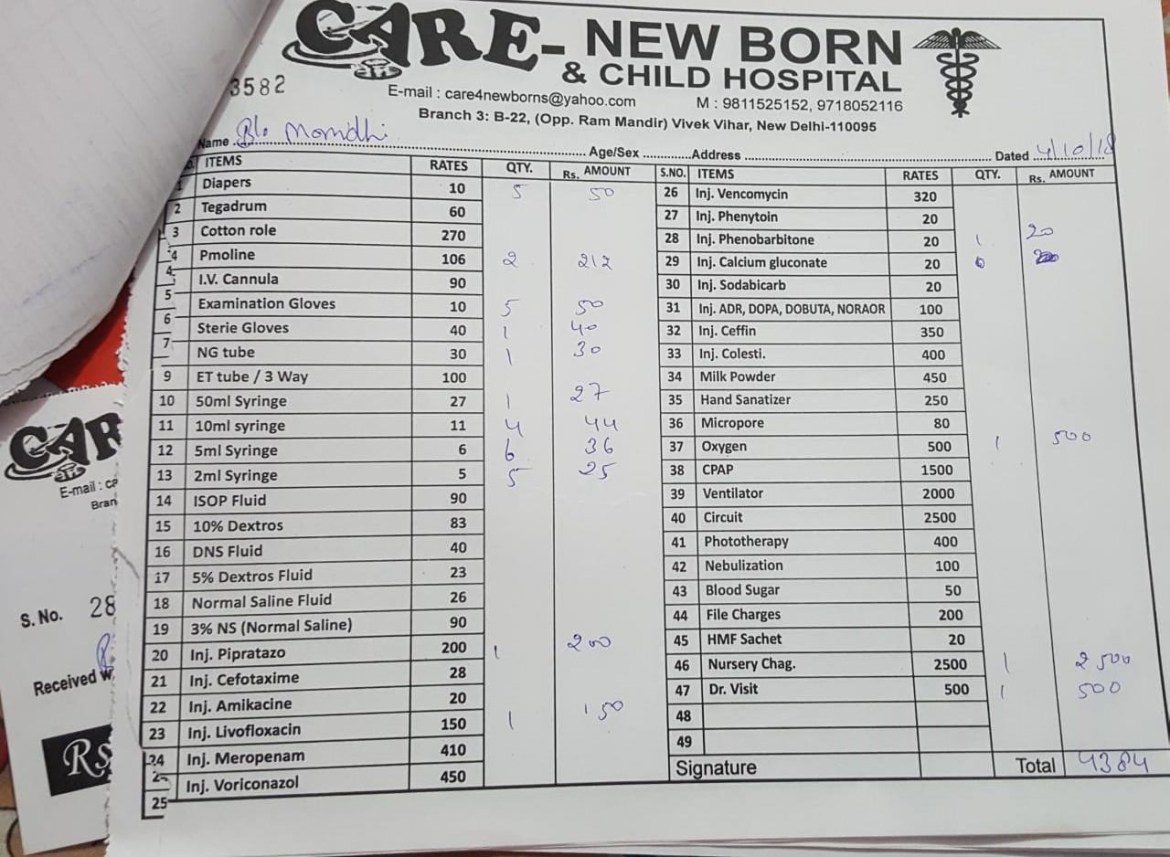 CARE- NEW BORN
& CHILD HOSPITAL
3582
E-mail : care4newborns@yahoo.com M : 9811525152, 9718052116
Branch 3: B-22, (Opp. Ram Mandir) Vivek Vihar, New Delhi-110095
Name B/o Age/Sex Address Dated 4/10/18
ITEMS RATES QTY. Rs. AMOUNT S.NO. ITEMS RATES QTY. Rs. AMOUNT
1 Diapers 10 5 50
2 Tegadrum 60
3 Cotton role 270
4 Pmoline 106 2 212
4 I.V. Cannula 90
5 Examination Gloves 10 5 50
6 Sterie Gloves 40 1 40
7 NG tube 30 1 30
9 ET tube / 3 Way 100
10 50ml Syringe 27 1 27
11 10ml syringe 11 4 44
12 5ml Syringe 6 6 36
13 2ml Syringe 5 5 25
14 ISOP Fluid 90
15 10% Dextros 83
16 DNS Fluid 40
17 5% Dextros Fluid 23
18 Normal Saline Fluid 26
19 3% NS (Normal Saline) 90
20 Inj. Pipratazo 200 1 200
21 Inj. Cefotaxime 28
22 Inj. Amikacine 20
23 Inj. Livofloxacin 150 1 150
24 Inj. Meropenam 410
25 Inj. Voriconazol 450
26 Inj. Vencomycin 320
27 Inj. Phenytoin 20
28 Inj. Phenobarbitone 20 1 20
29 Inj. Calcium gluconate 20
30 Inj. Sodabicarb 20
31 Inj. ADR, DOPA, DOBUTA, NORAOR 100
32 Inj. Ceffin 350
33 Inj. Colesti. 400
34 Milk Powder 450
35 Hand Sanatizer 250
36 Micropore 80
37 Oxygen 500 1 500
38 CPAP 1500
39 Ventilator 2000
40 Circuit 2500
41 Phototherapy 400
42 Nebulization 100
43 Blood Sugar 50
44 File Charges 200
45 HMF Sachet 20
46 Nursery Chag. 2500 1 2500
47 Dr. Visit 500 1 500
48
49
Signature Total 4384
CAR
E-mail : ca
Bran
S. No. 28
Received w
Rs